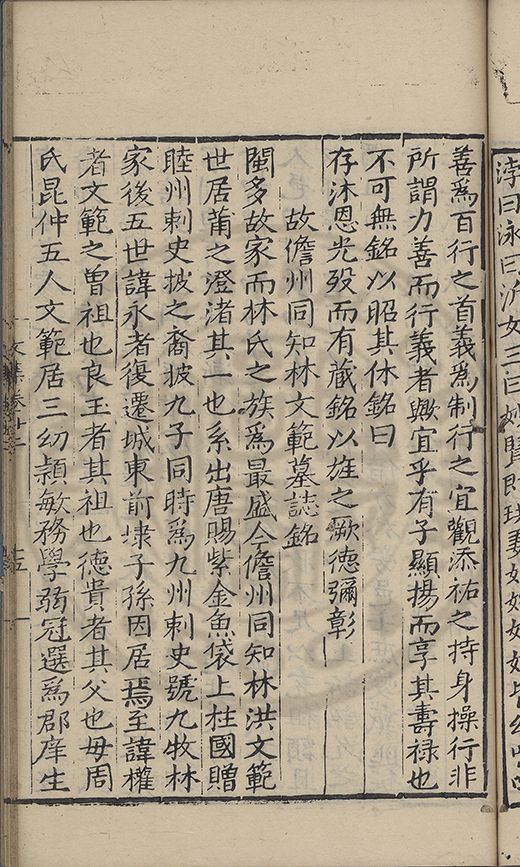 浡曰泳曰沂女三曰妙賢即
善爲百行之首義爲制行之宜觀添祐之持身操行非
所謂力善而行義者歟宜乎有子顯揚而享其壽祿也
不可無銘以昭其休銘曰
存沐恩光殁而有藏銘以旌之厥德彌彰
故儋州同知林文範墓誌銘
閩多故家而林氏之族爲最盛今儋州同知林洪文範
世居莆之澄渚其一也系出唐賜紫金魚袋上柱國贈
睦州刺史披之裔披九子同時爲九州刺史號九牧林
家後五世諱永者復遷城東前埭子孫因居焉至諱權
者文範之曾祖也良王者其祖也德貴者其父也母周
氏昆仲五人文範居三幼頴敏務學弱冠選爲郡庠生
文集卷十二
十五